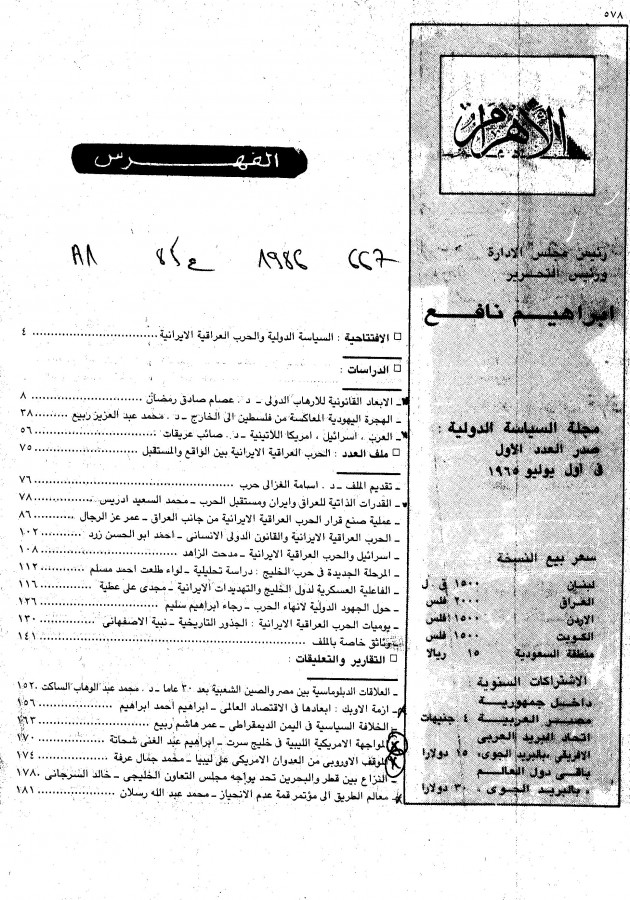 ٥٧٨
الأهرام
رئيس مجلس الادارة
ورئيس التحرير
ابراهيم نافع
مجلة السياسة الدولية :
صدر العدد الأول
فى أول يوليو ١٩٦٥
سعر بيع النسخة
لبنان ١٥٠٠ ق ل
العراق ٢٠٠٠ فلس
الاردن ١٥٠٠ فلس
الكويت ١٥٠٠ فلس
منطقة السعودية ١٥ ريالا
الاشتراكات السنوية :
داخل جمهورية
مصر العربية ٤ جنيهات
اتحاد البريد العربى
الافريقى ،بالبريد الجوى، ١٥ دولارا
باقى دول العالم
، بالبريد الجوى ، ٣٠ دولارا
الفهرس
A1 ع ٨٥ 1986 667
□ الافتتاحية : السياسة الدولية والحرب العراقية الايرانية ٤
□ الدراسات :
ـ الابعاد القانونية للارهاب الدولى ـ د . عصام صادق رمضان ٨
ـ الهجرة اليهودية المعاكسة من فلسطين الى الخارج ـ د . محمد عبد العزيز ربيع ٣٨
ـ العرب ، اسرائيل ، امريكا اللاتينية ـ د . صائب عريقات ٥٦
□ ملف العدد : الحرب العراقية الايرانية بين الواقع والمستقبل ٧٥
ـ تقديم الملف ـ د . اسامة الغزالى حرب ٧٦
ـ القدرات الذاتية للعراق وايران ومستقبل الحرب ـ محمد السعيد ادريس ٧٨
ـ عملية صنع قرار الحرب العراقية الايرانية من جانب العراق ـ عمر عز الرجال ٨٦
ـ الحرب العراقية الايرانية والقانون الدولى الانسانى ـ احمد ابو الحسن زرد ١٠٢
ـ اسرائيل والحرب العراقية الايرانية ـ مدحت الزاهد ١٠٨
ـ المرحلة الجديدة فى حرب الخليج : دراسة تحليلية ـ لواء طلعت احمد مسلم ١١٢
ـ الفاعلية العسكرية لدول الخليج والتهديدات الايرانية ـ مجدى على عطية ١١٦
ـ حول الجهود الدولية لانهاء الحرب ـ رجاء ابراهيم سليم ١٢٦
ـ يوميات الحرب العراقية الايرانية : الجذور التاريخية ـ نبية الاصفهانى ١٣٠
ـ وثائق خاصة بالملف ١٤١
□ التقارير والتعليقات :
ـ العلاقات الدبلوماسية بين مصر والصين الشعبية بعد ٣٠ عاما ـ د . محمد عبد الوهاب الساكت ١٥٢
ـ ازمة الاوبك : ابعادها فى الاقتصاد العالمى ـ ابراهيم احمد ابراهيم ١٥٦
ـ الخلافة السياسية فى اليمن الديمقراطى ـ عمر هاشم ربيع ١٦٣
ـ المواجهة الامريكية الليبية فى خليج سرت ـ ابراهيم عبد الغنى شحاتة ١٧٠
ـ الموقف الاوروبى من العدوان الامريكى على ليبيا ـ محمد جمال عرفة ١٧٤
ـ النزاع بين قطر والبحرين تحد يواجه مجلس التعاون الخليجى ـ خالد السرجانى ١٧٨
ـ معالم الطريق الى مؤتمر قمة عدم الانحياز ـ محمد عبد الله رسلان ١٨١